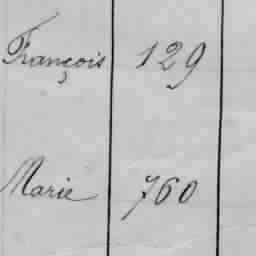 François 129
Marie 760